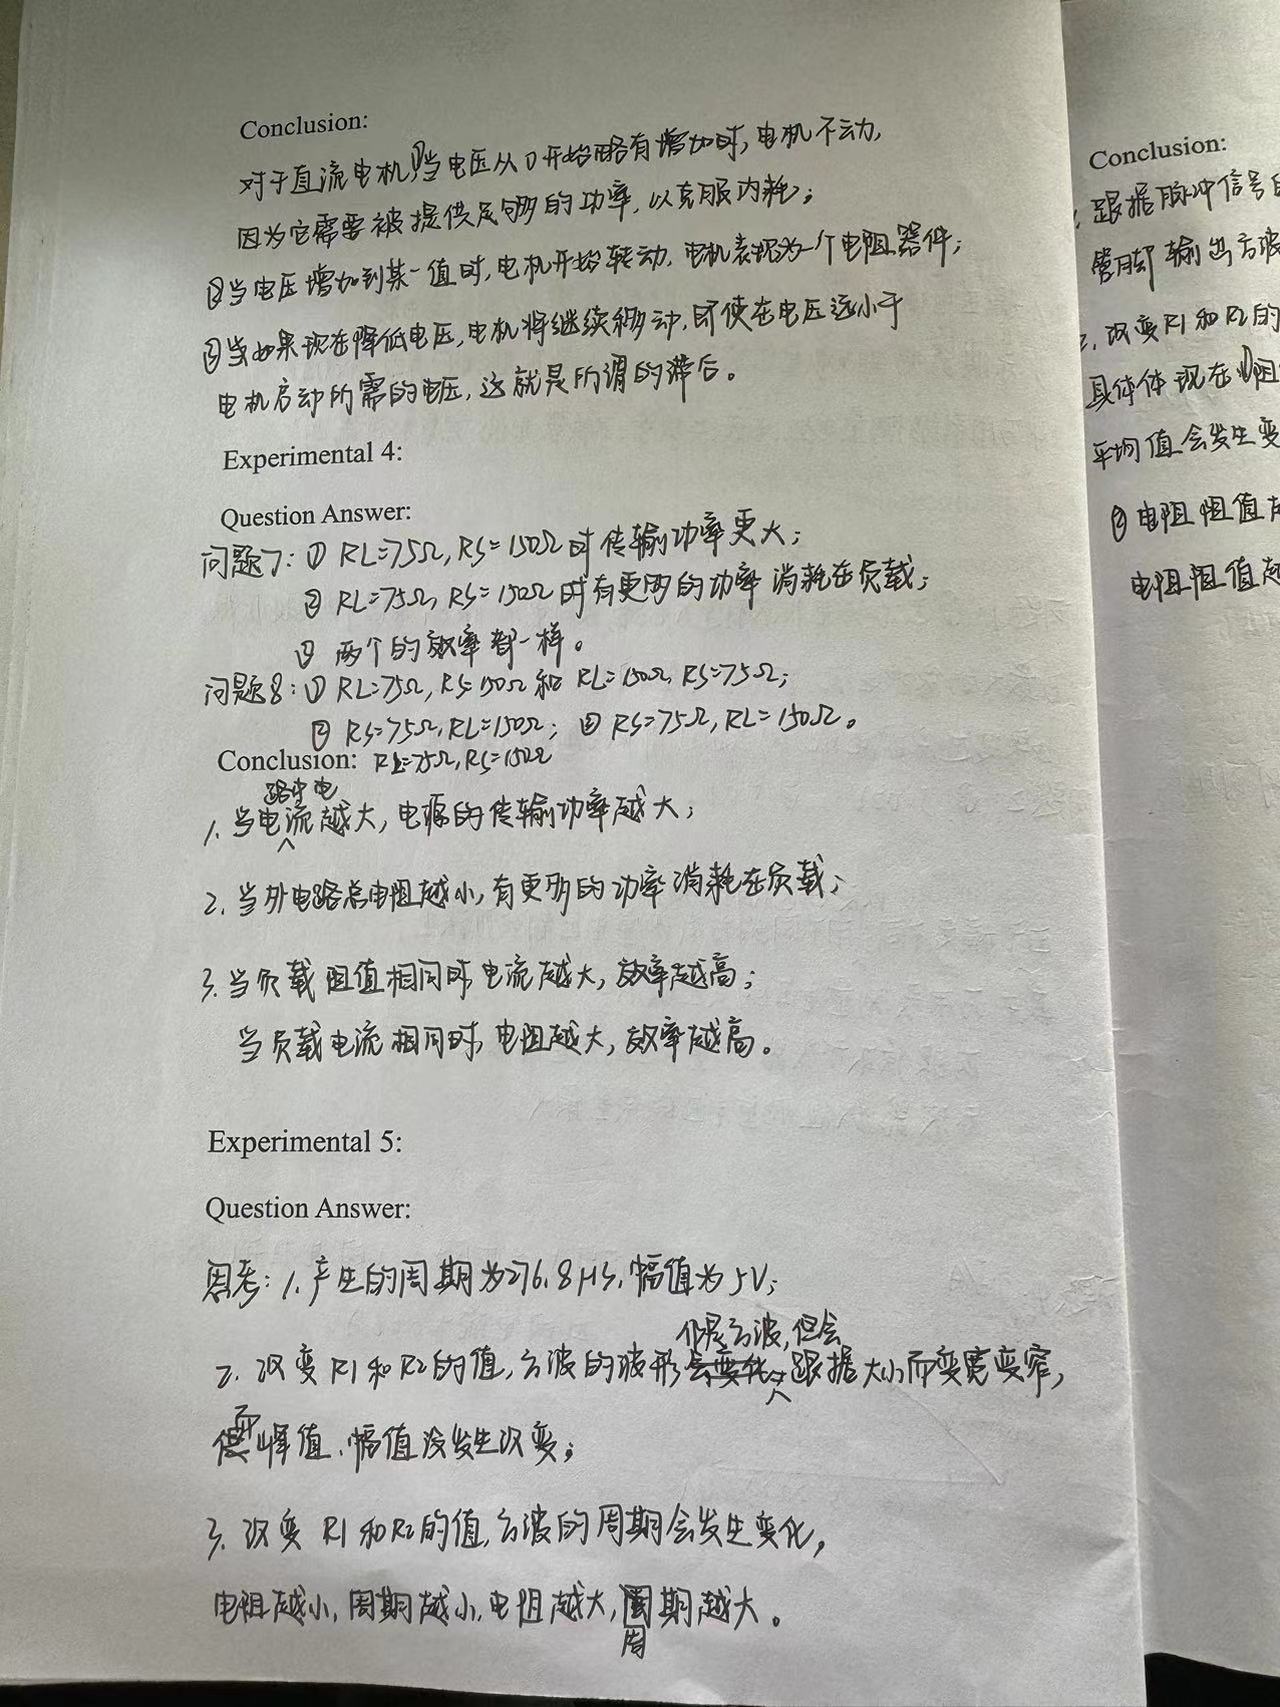 Conclusion:
对于直流电机,①当电压从0开始略有增加时,电机不动,
因为它需要被提供足够的功率,以克服内耗;
②当电压增加到某一值时,电机开始转动,电机表现为一个电阻器件;
③当如果现在降低电压,电机将继续移动,即使在电压远小于
电机启动所需的电压,这就是所谓的滞后。
Experimental 4:
Question Answer:
问题7: ① RL=75Ω, RS=150Ω时传输功率更大;
② RL=75Ω, RS=150Ω时有更多的功率消耗在负载;
③ 两个的效率都一样。
问题8: ① RL=75Ω, RS=150Ω和 RL=150Ω, RS=75Ω;
② RS=75Ω, RL=150Ω; ③ RS=75Ω, RL=150Ω。
Conclusion: RL=75Ω, RS=150Ω
1. 当电路中电流越大, 电源的传输功率越大;
2. 当外电路总电阻越小, 有更多的功率消耗在负载;
3. 当负载阻值相同时, 电流越大, 效率越高;
当负载电流相同时, 电阻越大, 效率越高。
Experimental 5:
Question Answer:
思考: 1. 产生的周期为276.8μs, 幅值为5V;
2. 改变R1和R2的值, 方波的波形仍是方波, 但会跟据大小而变宽变窄,
而峰值、幅值没发生改变;
3. 改变 R1和R2的值, 方波的周期会发生变化,
电阻越小, 周期越小, 电阻越大, 周期越大。
Conclusion:
跟据脉冲信号
管脚输出方波
2. 改变R1和R2的
具体体现在①阻
平均值会发生变
② 电阻阻值
电阻阻值越